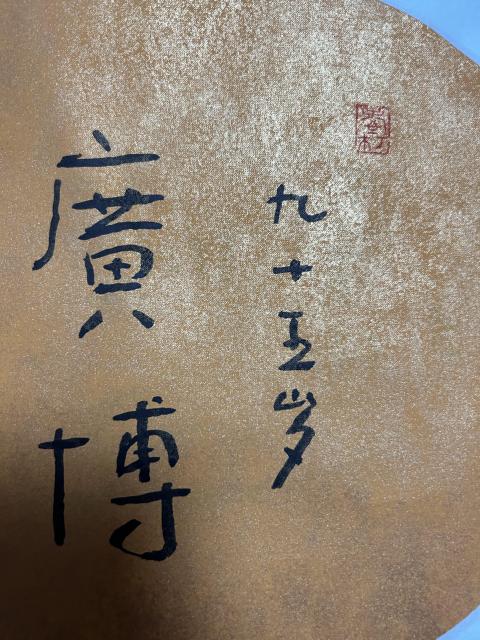 九十五岁
廣博